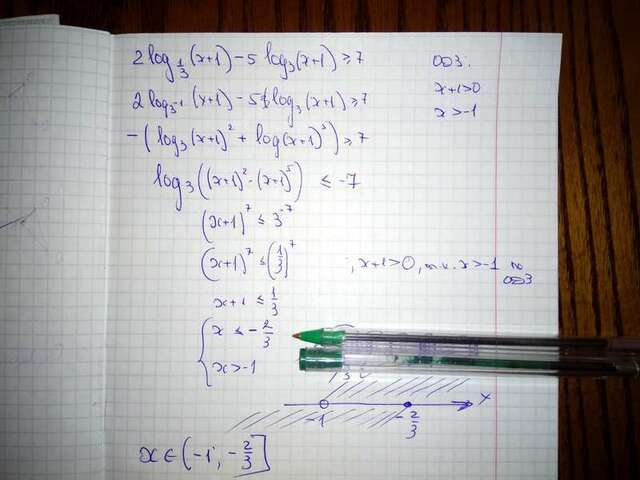 2log_{1/3}(x+1)-5 log_3(x+1)≥7
ОДЗ:
x+1>0
x>-1
2log_{3^{-1}}(x+1)-5 log_3(x+1)≥7
-(log_3(x+1)^2+log(x+1)^5)≥7
log_3((x+1)^2·(x+1)^5) ≤ -7
(x+1)^7 ≤ 3^{-7}
(x+1)^7 ≤ (1/3)^7 ; x+1>0, т.к. x>-1 по ОДЗ
x+1 ≤ 1/3
{x ≤ -2/3
x>-1
-1 -2/3 x
x∈(-1; -2/3]